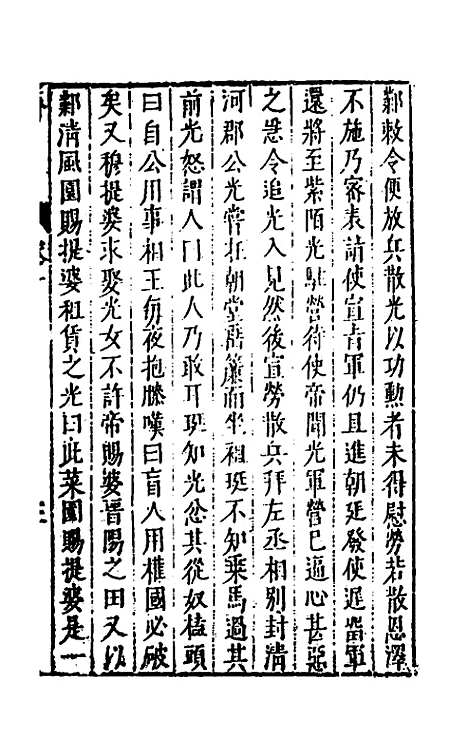 鄴敕令便放兵散光以功勳者未得慰勞若散恩澤
不施乃密表請使宣旨軍仍且進朝廷發使遲留軍
還將至紫陌光駐營待使帝聞光軍營已逼心甚惡
之急令追光入見然後宣勞散兵拜左丞相別封清
河郡公光嘗在朝堂垂簾而坐祖珽不知乘馬過其
前光怒謂人曰此人乃敢耳珽知光忿其從奴搕頭
曰自公用事相王每夜抱膝嘆曰盲人用權國必破
矣又穆提婆求娶光女不許帝賜婆晋陽之田又以
鄴清風園賜提婆租賃之光曰此菜園賜提婆是一